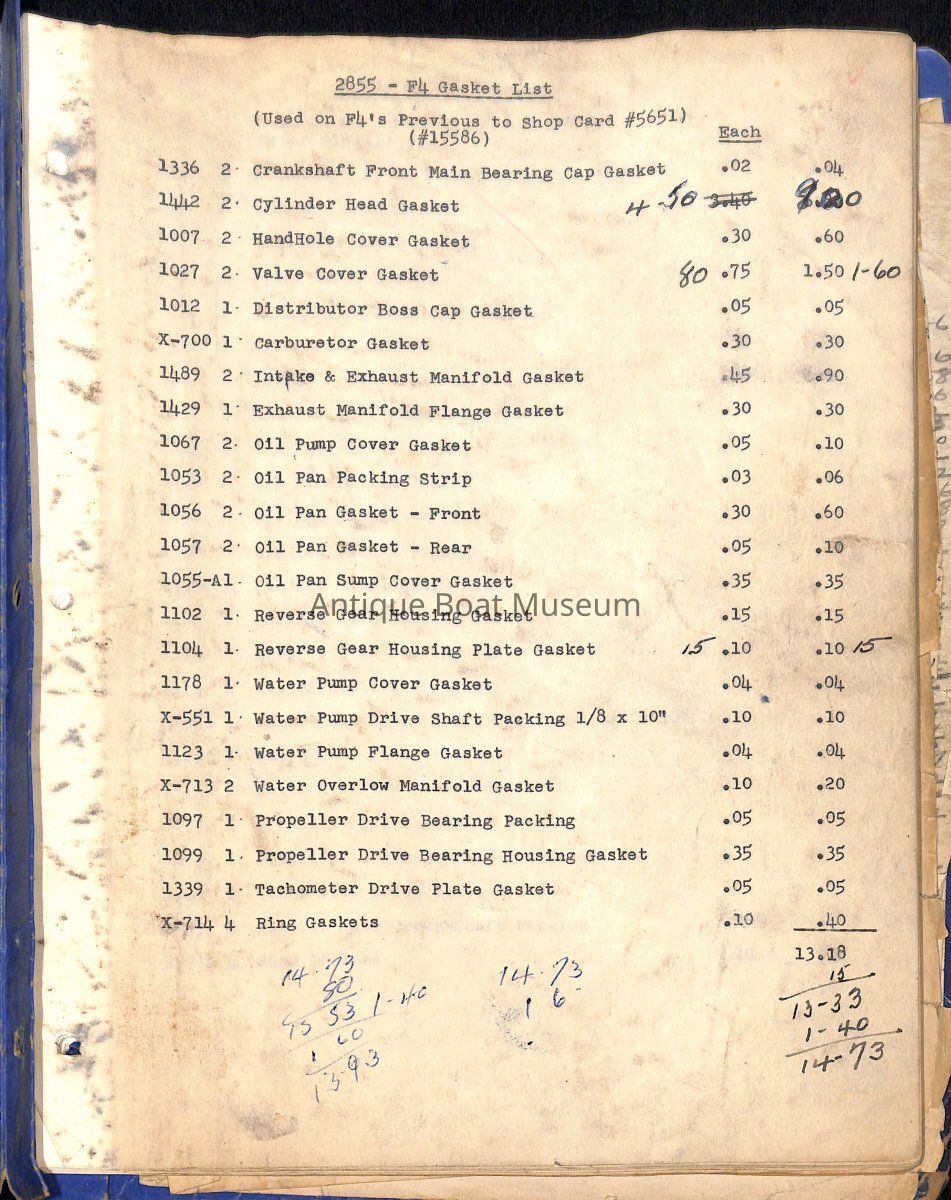 2855 - F4 Gasket List
(Used on F4's Previous to Shop Card #5651)
(#15586) Each
1336 2 Crankshaft Front Main Bearing Cap Gasket .02 .04
1442 2 Cylinder Head Gasket 4 50 3.40
1007 2 HandHole Cover Gasket .30 .60
1027 2 Valve Cover Gasket 80 .75 1.50 1-60
1012 1 Distributor Boss Cap Gasket .05 .05
X-700 1 Carburetor Gasket .30 .30
1489 2 Intake & Exhaust Manifold Gasket .45 .90
1429 1 Exhaust Manifold Flange Gasket .30 .30
1067 2 Oil Pump Cover Gasket .05 .10
1053 2 Oil Pan Packing Strip .03 .06
1056 2 Oil Pan Gasket - Front .30 .60
1057 2 Oil Pan Gasket - Rear .05 .10
1055-A1 Oil Pan Sump Cover Gasket .35 .35
Antique Boat Museum
1102 1 Reverse Gear Housing Gasket .15 .15
1104 1 Reverse Gear Housing Plate Gasket 15 .10 .10 15
1178 1 Water Pump Cover Gasket .04 .04
X-551 1 Water Pump Drive Shaft Packing 1/8 x 10" .10 .10
1123 1 Water Pump Flange Gasket .04 .04
X-713 2 Water Overlow Manifold Gasket .10 .20
1097 1 Propeller Drive Bearing Packing .05 .05
1099 1 Propeller Drive Bearing Housing Gasket .35 .35
1339 1 Tachometer Drive Plate Gasket .05 .05
X-714 4 Ring Gaskets .10 .40
13.18
15
13-33
1-40
14-73
14.73
80
15 53 1-40
1 60
14.73
1 6